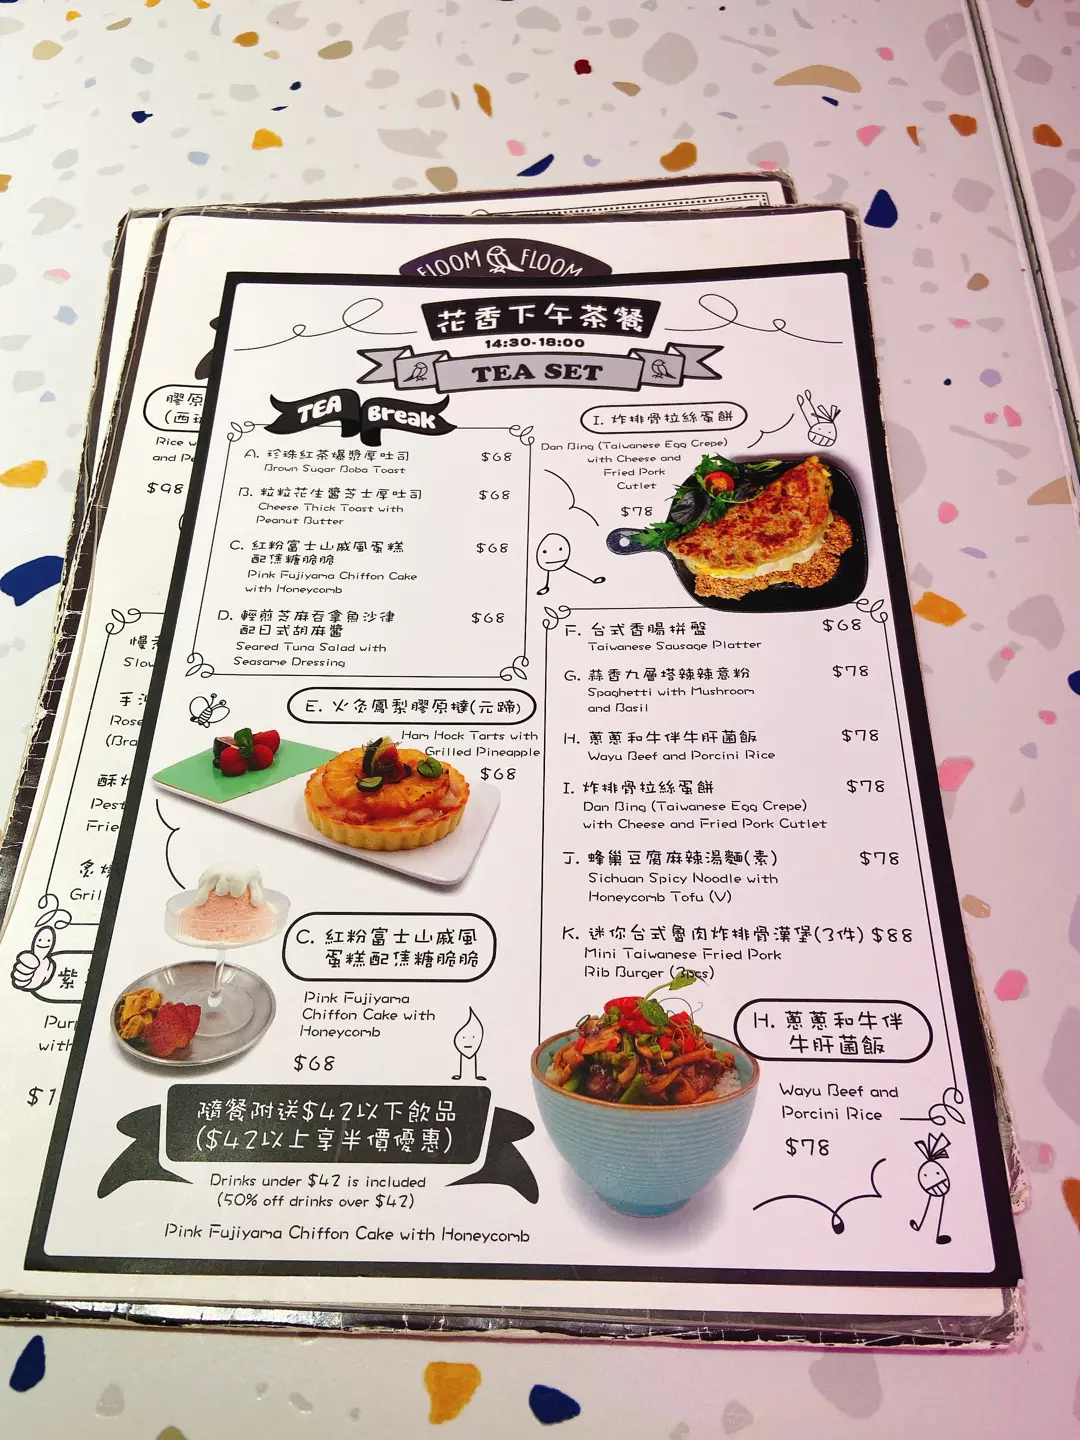 FLOOM FLOOM
花香下午茶餐
14:30-18:00
TEA SET
TEA Break
A. 珍珠紅茶爆漿厚吐司 $68
Brown Sugar Boba Toast
B. 粒粒花生醬芝士厚吐司 $68
Cheese Thick Toast with
Peanut Butter
C. 紅粉富士山戚風蛋糕 $68
配焦糖脆脆
Pink Fujiyama Chiffon Cake
with Honeycomb
D. 輕煎芝麻吞拿魚沙律 $68
配日式胡麻醬
Seared Tuna Salad with
Seasame Dressing
I. 炸排骨拉絲蛋餅
Dan Bing (Taiwanese Egg Crepe)
with Cheese and
Fried Pork
Cutlet
$78
E. 火炙鳳梨膠原撻(元蹄)
Ham Hock Tarts with
Grilled Pineapple
$68
C. 紅粉富士山戚風
蛋糕配焦糖脆脆
Pink Fujiyama
Chiffon Cake with
Honeycomb
$68
F. 台式香腸拼盤 $68
Taiwanese Sausage Platter
G. 蒜香九層塔辣辣意粉 $78
Spaghetti with Mushroom
and Basil
H. 蔥蔥和牛伴牛肝菌飯 $78
Wayu Beef and Porcini Rice
I. 炸排骨拉絲蛋餅 $78
Dan Bing (Taiwanese Egg Crepe)
with Cheese and Fried Pork Cutlet
J. 蜂巢豆腐麻辣湯麵(素) $78
Sichuan Spicy Noodle with
Honeycomb Tofu (V)
K. 迷你台式魯肉炸排骨漢堡(3件) $88
Mini Taiwanese Fried Pork
Rib Burger (3pcs)
H. 蔥蔥和牛伴
牛肝菌飯
Wayu Beef and
Porcini Rice
$78
隨餐附送$42以下飲品
($42以上享半價優惠)
Drinks under $42 is included
(50% off drinks over $42)
Pink Fujiyama Chiffon Cake with Honeycomb
膠原
(西
Rice
and
$98
Slow
手
Rose
(Bra
酥
Pest
Frie
炙
Gril
紫
Pur
with
$1